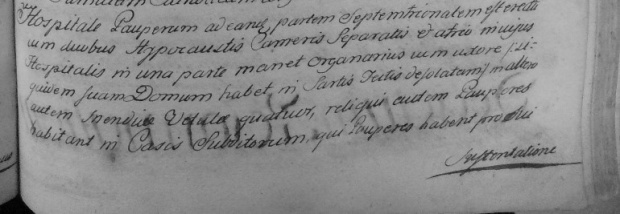 Hospitale Pauperum ad eandem partem Septemtrionalem est erectum
cum duobus Hypocaustis Cameris Separatis et atrio in cujus
Hospitalis in una parte manet organarius cum uxore sui
quidem suam Domum habet, in Sartis Tectis desolatam, in altero
autem Mendicæ Vetulæ quatuor, reliqui autem Pauperes
habitant in Casis Subditorum, qui Pauperes habent pro sui
Sustentatione